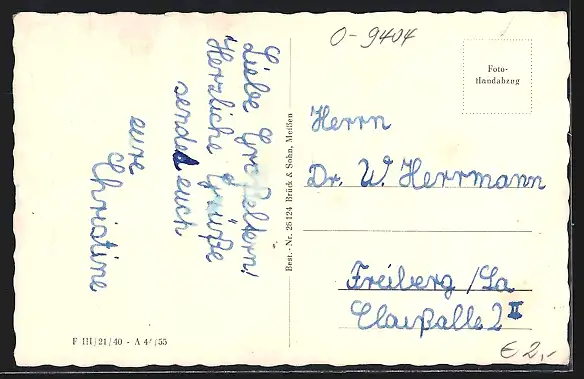 O-9404
Foto-
Handabzug
Liebe Großeltern!
Herzliche Grüße
sendet euch
eure
Christine
Best.-Nr. 26124 Brück & Sohn, Meißen
Herrn
Dr. W. Herrmann
Freiberg /Sa
Claußallee 2 II
F III/21/40 - A 4 /55
€ 2,-